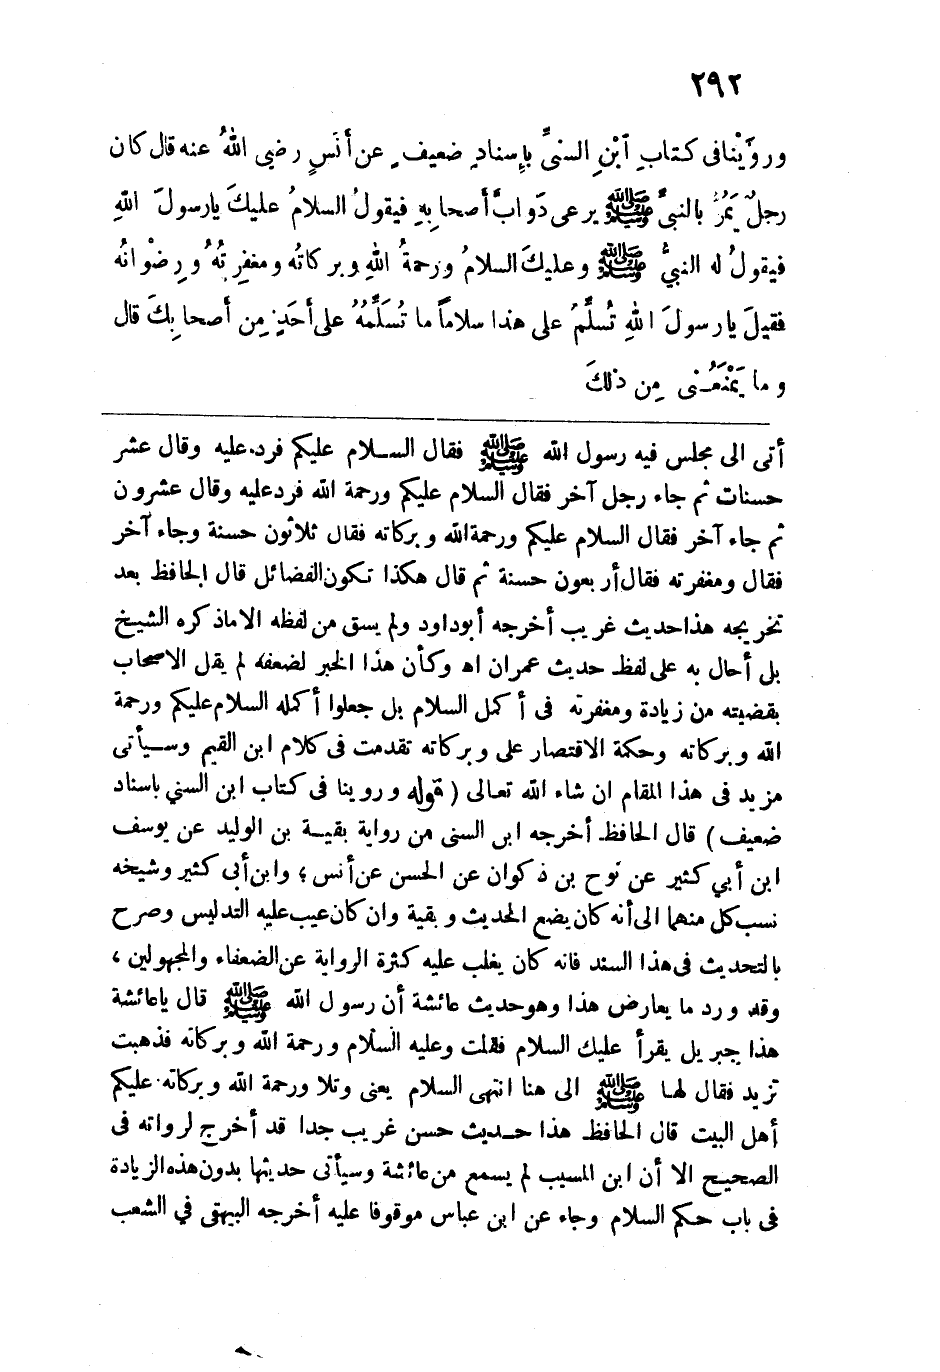 ٢٩٢
وروَّيْنا فى كتابِ ٱبْنِ السنىِّ بإسنادٍ ضعيفٍ عن أنَسٍ رضي اللهُ عنه قال كان
رجلٌ يَمُرُّ بالنبىِّ ﷺ يرعى دَوابَّ أصحابِهِ فيقولُ السلامُ عليكَ يارسولَ اللهِ
فيقولُ له النبيُّ ﷺ وعليكَ السلامُ ورحمةُ اللهِ وبركاتُه ومغفِرتُهُ ورِضْوانُه
فقيلَ يارسولَ اللهِ تُسلِّمُ على هذا سلاماً ما تُسَلِّمُهُ على أحَدٍ مِن أصحابِكَ قال
وما يَمْنَعُنى مِن ذلكَ
أتى الى مجلس فيه رسول الله ﷺ فقال السلام عليكم فرد عليه وقال عشر
حسنات ثم جاء رجل آخر فقال السلام عليكم ورحمة الله فرد عليه وقال عشرون
ثم جاء آخر فقال السلام عليكم ورحمة الله وبركاته فقال ثلاثون حسنة وجاء آخر
فقال ومغفرته فقال أربعون حسنة ثم قال هكذا تكون الفضائل قال الحافظ بعد
تخريجه هذا حديث غريب أخرجه أبوداود ولم يسق من لفظه الا ماذكره الشيخ
بلى أحال به على لفظ حديث عمران اه وكأن هذا الخبر لضعفه لم يقل الاصحاب
بقضيته من زيادة ومغفرته فى أكمل السلام بل جعلوا أكمله السلام عليكم ورحمة
الله وبركاته وحكمة الاقتصار على وبركاته تقدمت فى كلام ابن القيم وسيأتى
مزيد فى هذا المقام ان شاء الله تعالى (قوله وروينا فى كتاب ابن السني باسناد
ضعيف) قال الحافظ أخرجه ابن السنى من رواية بقية بن الوليد عن يوسف
ابن أبي كثير عن نوح بن ذكوان عن الحسن عن أنس ؛ وابن أبى كثير وشيخه
نسب كل منهما الى أنه كان يضع الحديث وبقية وان كان عيب عليه التدليس وصرح
بالتحديث فى هذا السند فانه كان يغلب عليه كثرة الرواية عن الضعفاء والمجهولين ،
وقد ورد ما يعارض هذا وهو حديث عائشة أن رسول الله ﷺ قال ياعائشة
هذا جبريل يقرأ عليك السلام فقلت وعليه السلام ورحمة الله وبركاته فذهبت
تزيد فقال لها ﷺ الى هنا انتهى السلام يعنى وتلا ورحمة الله وبركاته عليكم
أهل البيت قال الحافظ هذا حديث حسن غريب جدا قد أخرج لرواته فى
الصحيح الا أن ابن المسيب لم يسمع من عائشة وسيأتى حديثها بدون هذه الزيادة
فى باب حكم السلام وجاء عن ابن عباس موقوفا عليه أخرجه البيهقى في الشعب